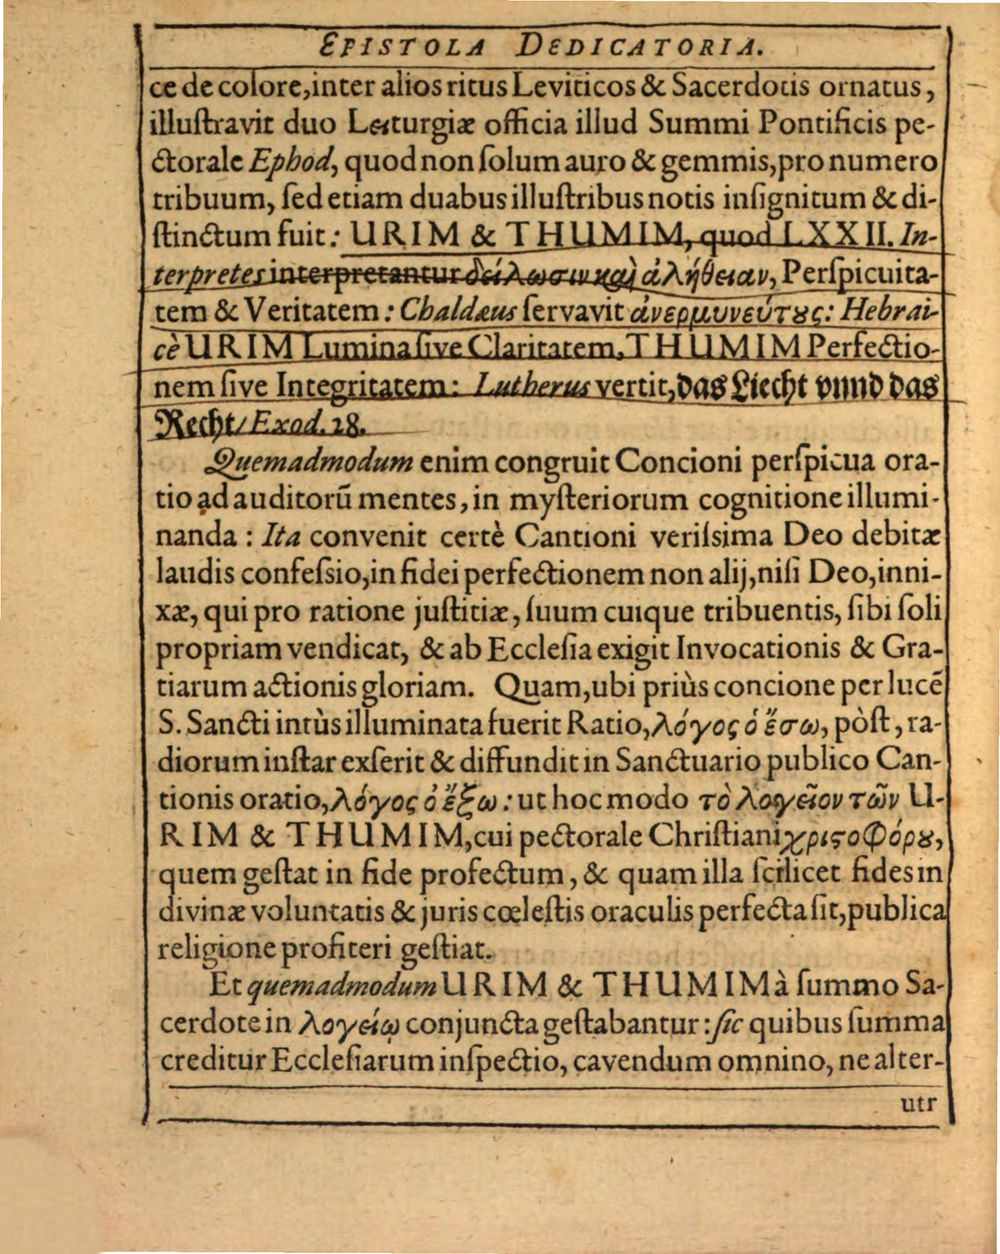 EPISTOLA DEDICATORIA.
ce de colore, inter alios ritus Leviticos & Sacerdotis ornatus,
illuſtravit duo Leiturgiæ officia illud Summi Pontificis pe-
ctorale Ephod, quod non ſolum auro & gemmis, pro numero
tribuum, ſed etiam duabus illuſtribus notis inſignitum & di-
ſtinctum fuit: URIM & THUMIM, quod LXXII. In-
terpretes interpretantur δείλωσιν καὶ ἀλήθειαν, Perſpicuita-
tem & Veritatem: Chaldæus ſervavit ἀνερμυνεύτȣς: Hebrai-
cè URIM Lumina ſive Claritatem, THUMIM Perfectio-
nem ſive Integritatem: Lutherus vertit, das Liecht vnnd das
Recht/ Exod. 28.
Quemadmodum enim congruit Concioni perſpicua ora-
tio ad auditorũ mentes, in myſteriorum cognitione illumi-
nanda: Ita convenit certè Cantioni veriſsima Deo debitæ
laudis confeſsio, in fidei perfectionem non alij, niſi Deo, inni-
xæ, qui pro ratione juſtitiæ, ſuum cuique tribuentis, ſibi ſoli
propriam vendicat, & ab Eccleſia exigit Invocationis & Gra-
tiarum actionis gloriam. Quam, ubi priùs concione per lucẽ
S. Sancti intùs illuminata fuerit Ratio, λόγος ὁ ἔσω, pòſt, ra-
diorum inſtar exſerit & diffundit in Sanctuario publico Can-
tionis oratio, λόγος ὁ ἔξω: ut hoc modo τὸ λογεῖον τῶν U-
RIM & THUMIM, cui pectorale Chriſtiani χριϛοφόρȣ,
quem geſtat in fide profectum, & quam illa ſcilicet fides in
divinæ voluntatis & juris cœleſtis oraculis perfecta ſit, publica
religione profiteri geſtiat.
Et quemadmodum URIM & THUMIM à ſummo Sa-
cerdote in λογείῳ conjuncta geſtabantur: ſic quibus ſumma
creditur Eccleſiarum inſpectio, cavendum omnino, ne alter-
utr